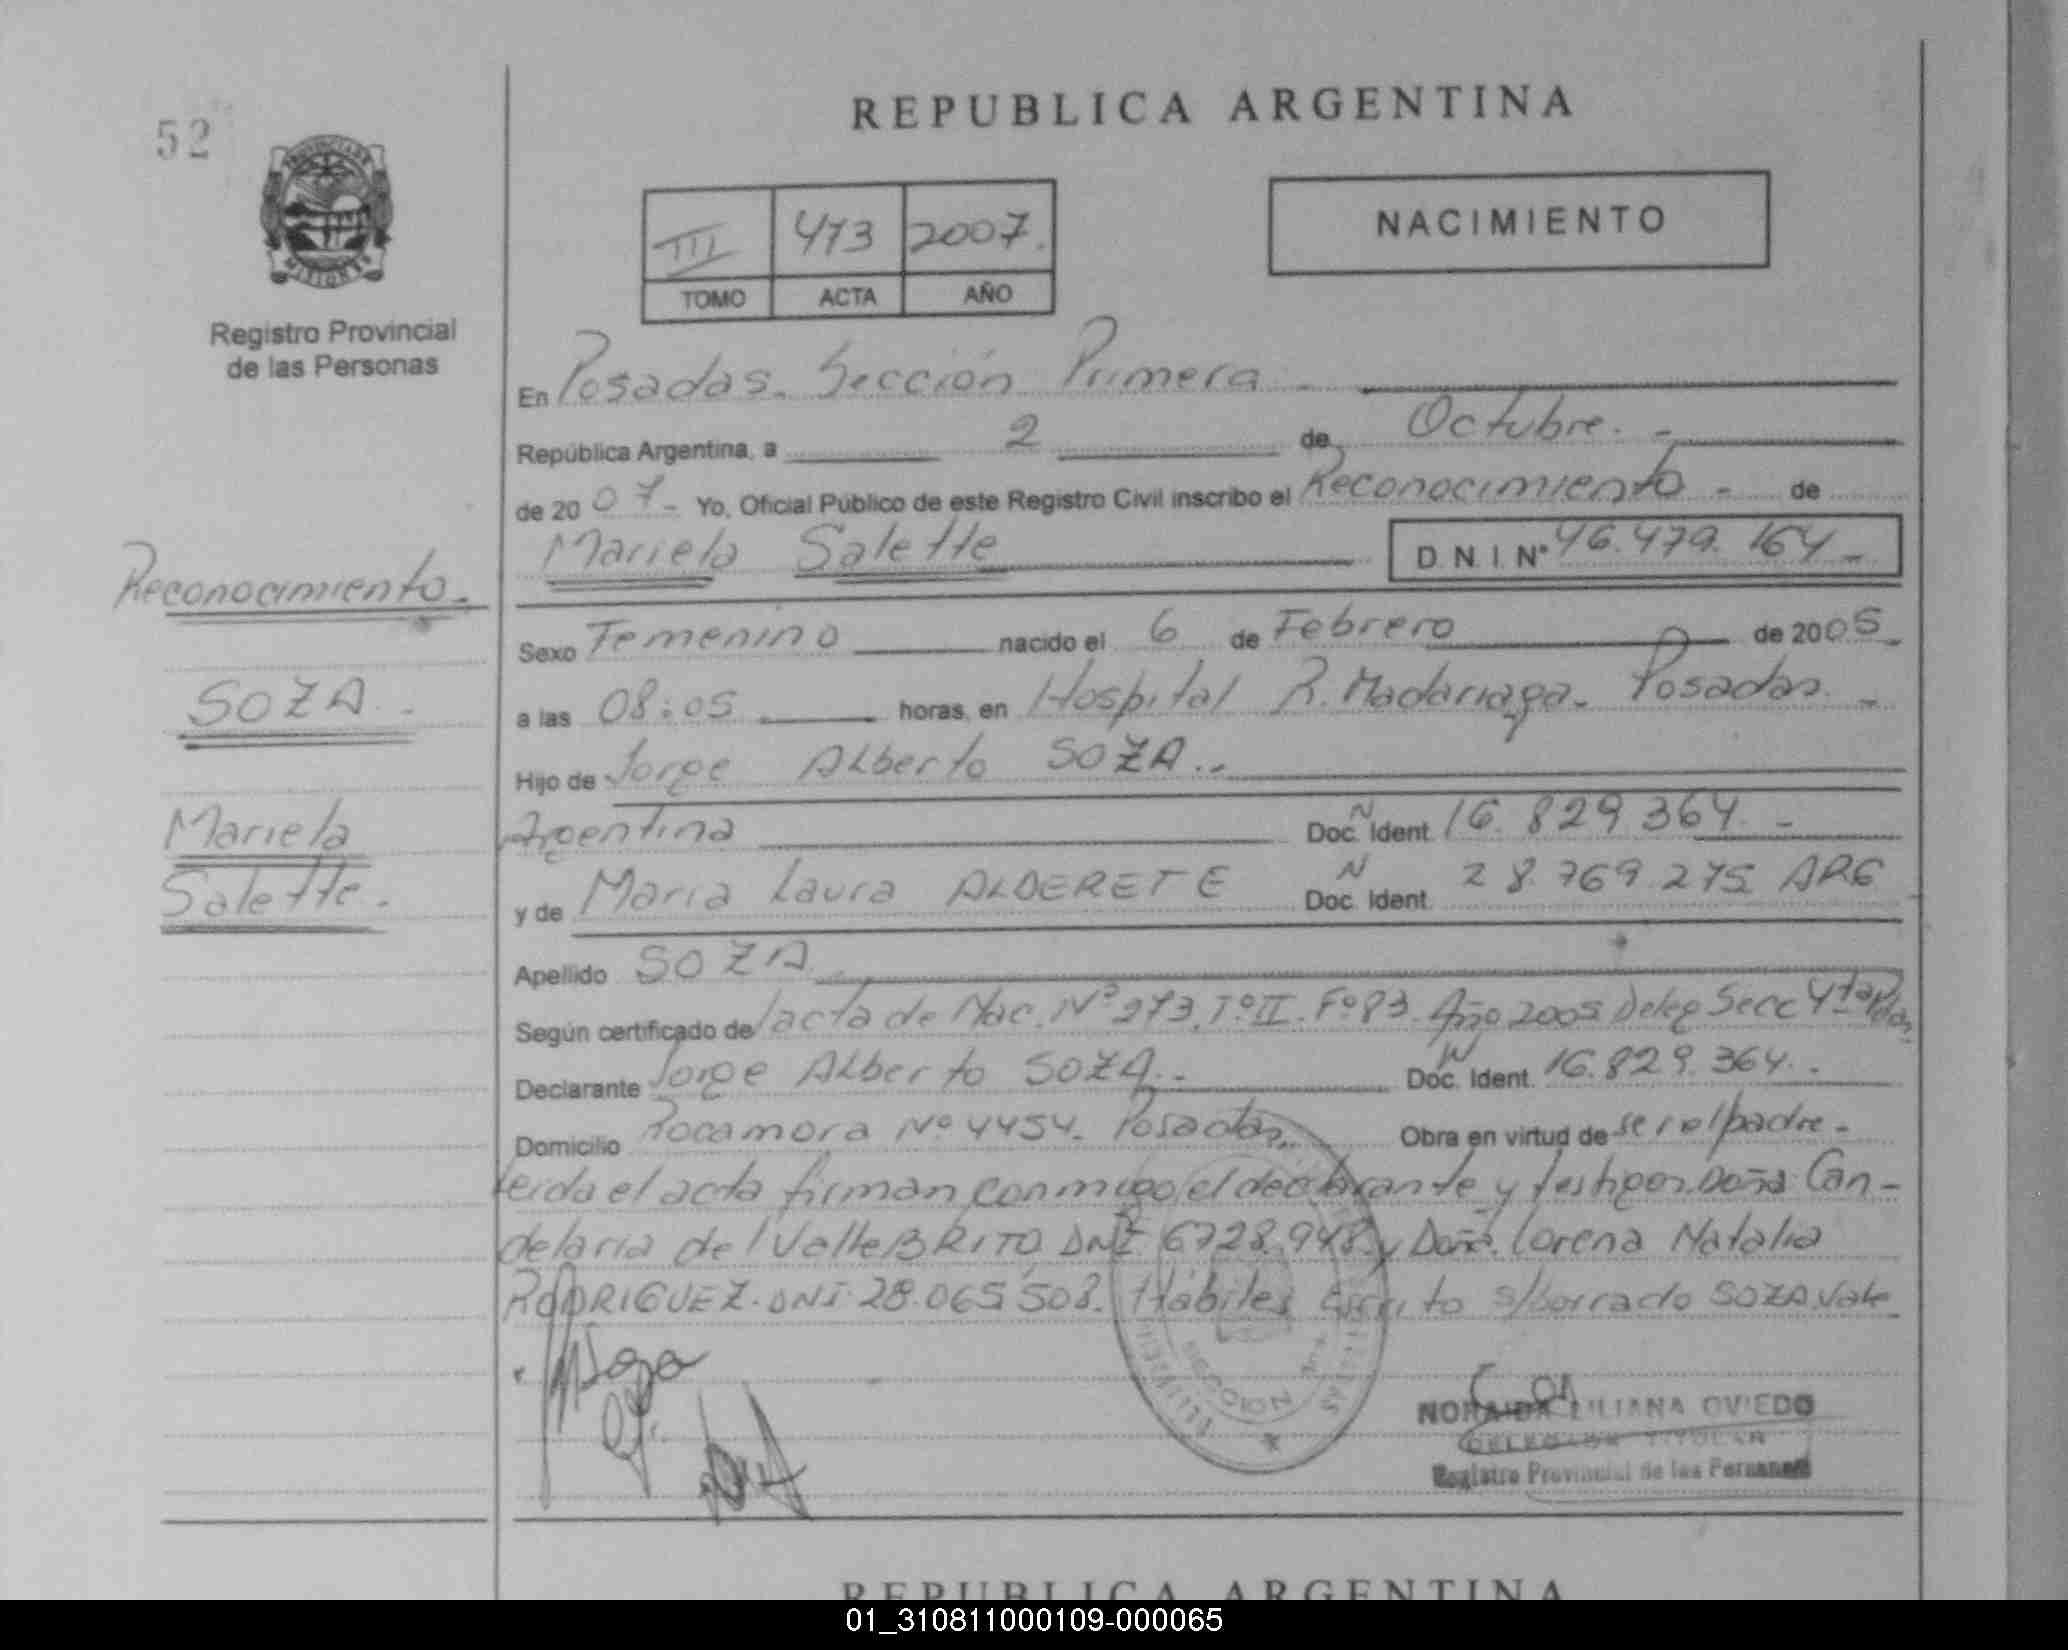 REPUBLICA ARGENTINA
52
NACIMIENTO
III 473 2007.
TOMO ACTA AÑO
PROVINCIA DE
MISIONES
Registro Provincial
de las Personas
En Posadas. Sección Primera -
República Argentina, a 2 de Octubre. -
de 2007- Yo, Oficial Público de este Registro Civil inscribo el Reconocimiento - de
Mariela Salette D.N.I. N° 46.479.164 -
Reconocimiento.
Sexo Femenino nacido el 6 de Febrero de 2005
SOZA.
a las 08:05 horas, en Hospital R. Madariaga. Posadas. -
Hijo de Jorge Alberto SOZA..
Mariela
Argentina Doc. Ident. N 16.829.364 -
Salette.
y de Maria Laura ALDERETE Doc. Ident. N 28.769.275 ARG
Apellido SOZA
Según certificado de acta de Nac. N° 273. T° II. F° 83. Año 2005 Deleg Secc 4ta Pdas
Declarante Jorge Alberto SOZA.. Doc. Ident. N 16.829.364..
Domicilio Rocamora N° 4454. Posadas. Obra en virtud de ser el padre -
Leida el acta firman conmigo el declarante y testigos. Doña Can-
delaria del Valle BRITO DNI 6728.948 y Doña. Lorena Natalia
RODRIGUEZ. DNI. 28.065.508. Hábiles Escrito s/borrado SOZA. Vale
Soza
SECCION
NORAIDA LILIANA OVIEDO
DELEGADA TITULAR
Registro Provincial de las Personas
REPUBLICA ARGENTINA
01_310811000109-000065